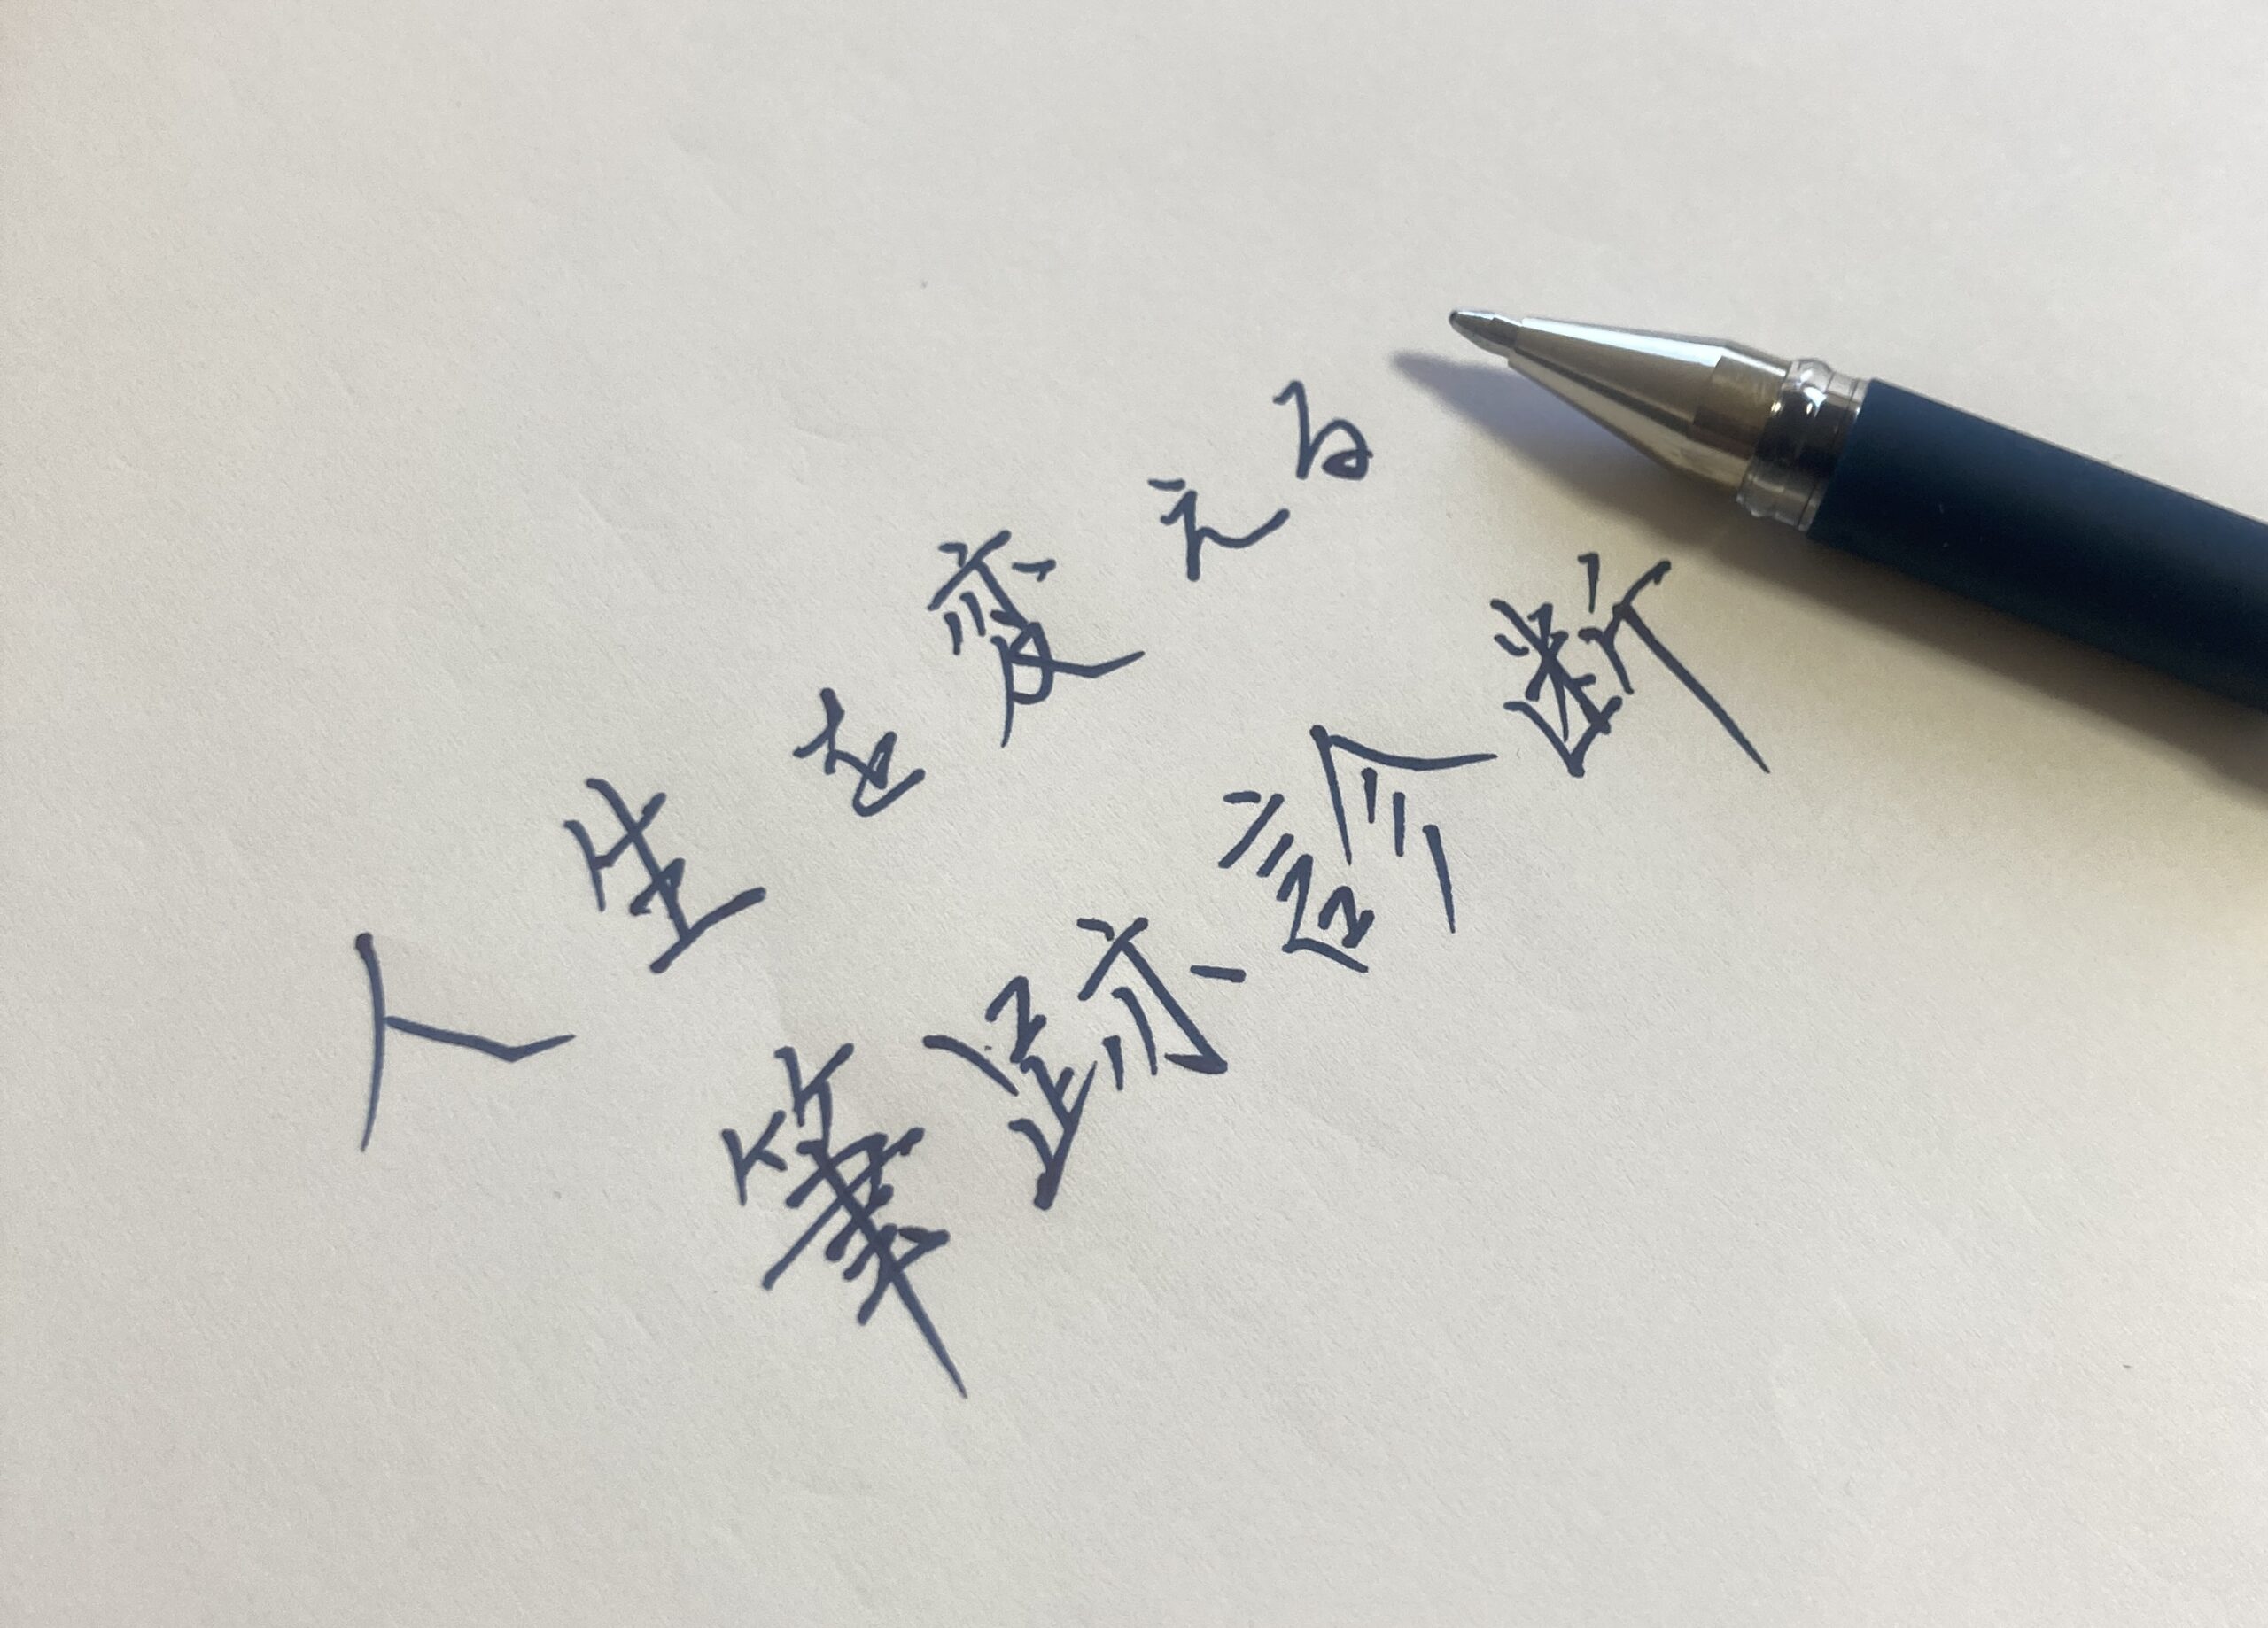 人生を変える
筆跡診断